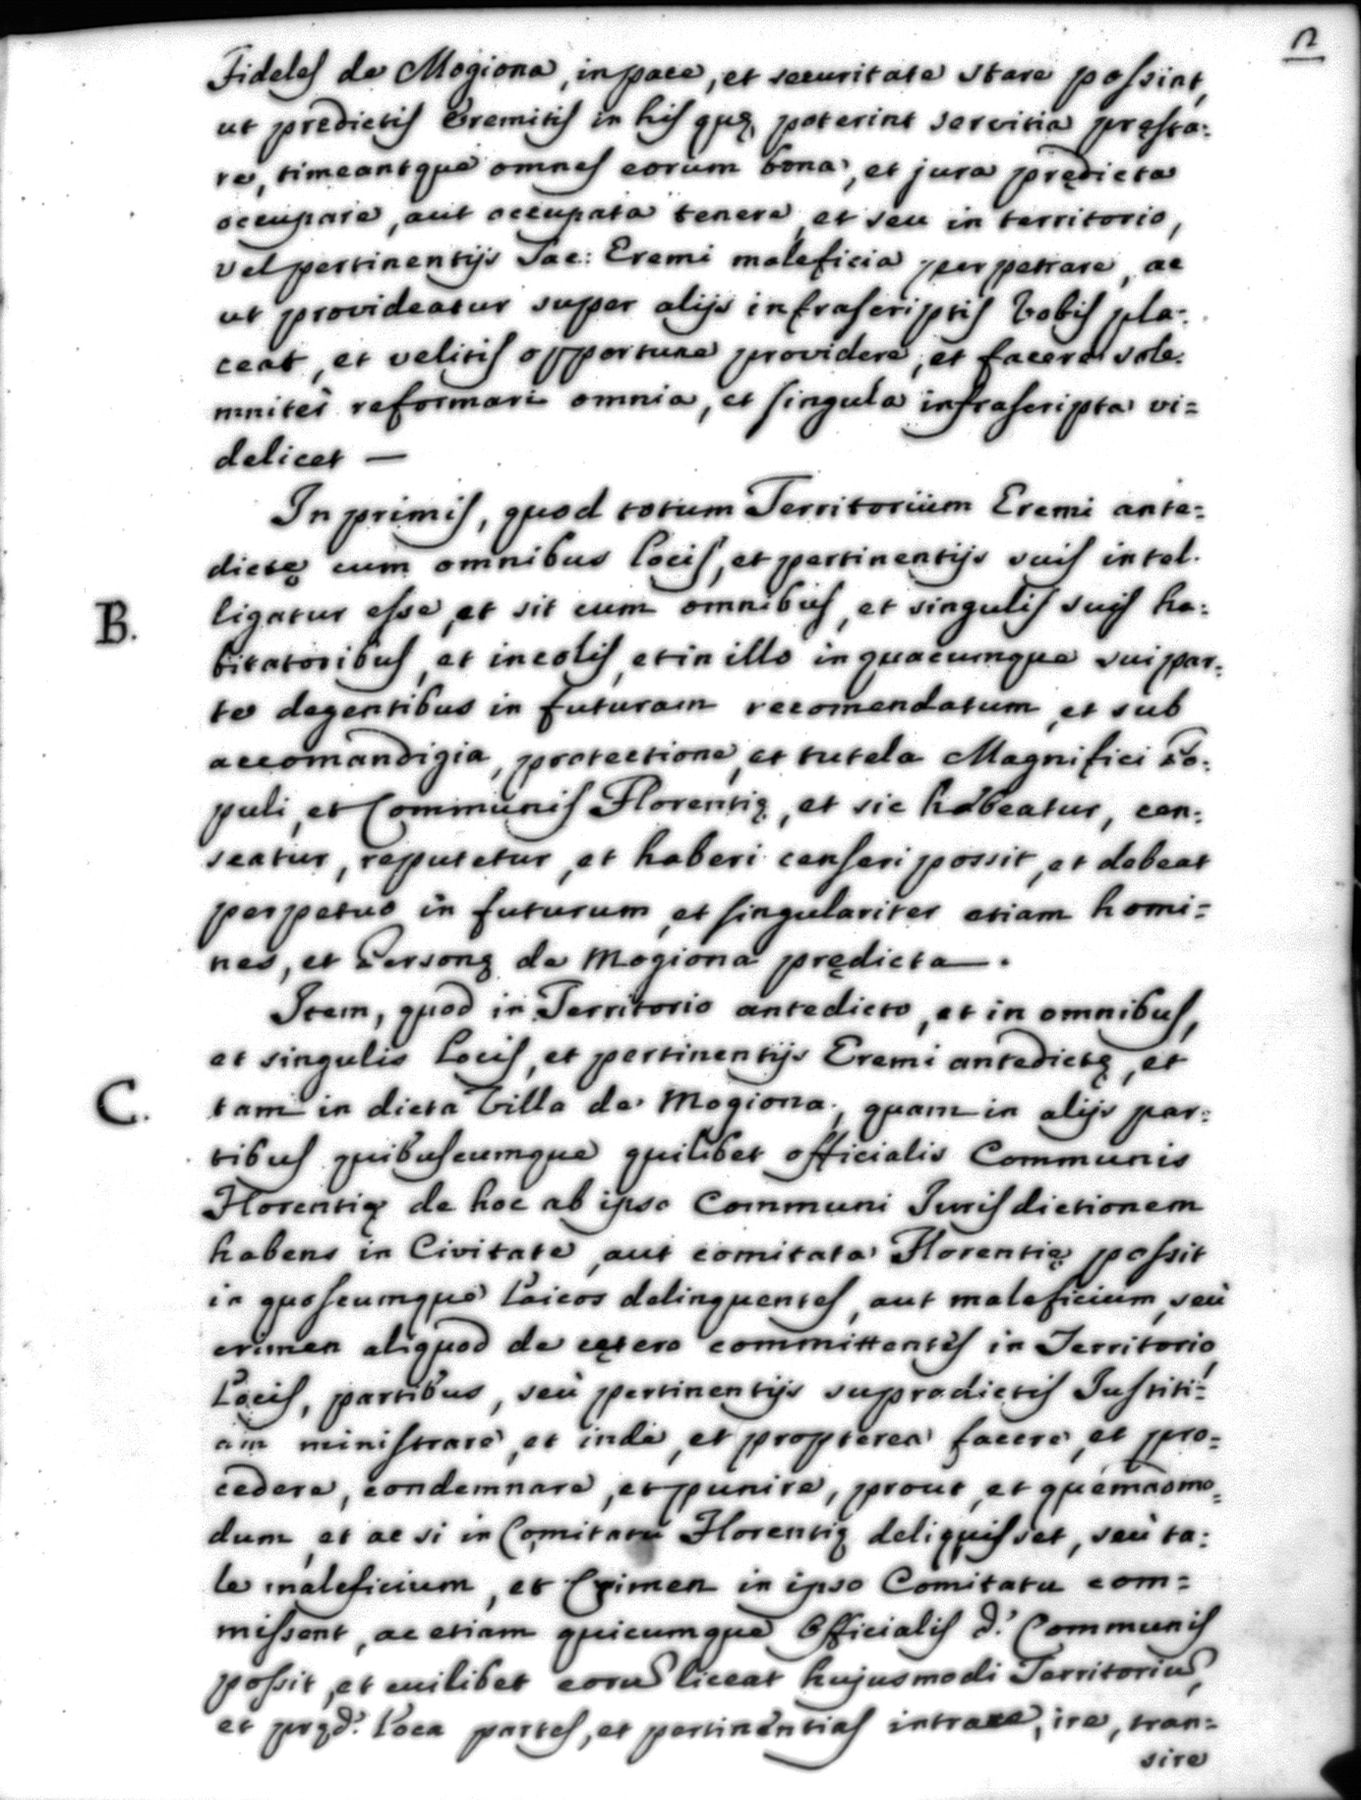 2
Fideles de Mogiona, in pace, et securitate stare possint,
ut predictis Eremitis in his quę poterint servitia pręsta:
re, timeantque omnes eorum bona, et jura prędicta
occupare, aut occupata tenere, et seu in territorio,
vel pertinentijs Sac: Eremi maleficia perpetrare, ac
ut provideatur super alijs infrascriptis Vobis pla:
ceat, et velitis opportune providere, et facere sole:
mnitèr reformari omnia, et singula infrascripta vi=
delicet —
In primis, quod totum Territorium Eremi ante=
dictę cum omnibus Locis, et pertinentijs suis intel.
B.
ligatur esse, et sit cum omnibus, et singulis suis ha:
bitatoribus, et incolis, et in illo in quacumque sui par:
te degentibus in futuram recomendatum, et sub
accomandigia, protectione, et tutela Magnifici Po:
puli, et Communis Florentię, et sic habeatur, cen:
seatur, reputetur, et haberi censeri possit, et debeat
perpetuo in futurum, et singulariter etiam homi=
nes, et Personę de Mogiona prędicta —.
Item, quod in Territorio antedicto, et in omnibus,
et singulis Locis, et pertinentijs Eremi antedictę, et
C.
tam in dicta Villa de Mogiona, quam in alijs par:
tibus quibuscumque quilibet officialis Communis
Florentię de hoc ab ipso Communi Jurisdictionem
habens in Civitate, aut comitata Florentię possit
in quoscumque Laicos delinquentes, aut maleficium, seù
crimen aliquod de cętero committentes in Territorio,
Locis, partibus, seù pertinentijs supradictis Justiti=
am ministrare, et inde, et propterea facere, et pro=
cedere, condemnare, et punire, prout, et quemadmo=
dum, et ac si in Comitatu Florentię deliquisset, seù ta:
le maleficium, et Crimen in ipso Comitatu com=
missent, ac etiam quicumque Officialis d.' Communis
possit, et cuilibet eorũ liceat hujusmodi Territoriũ,
et pręd.' Loca partes, et pertinentias intrare, ire, tran=
sire